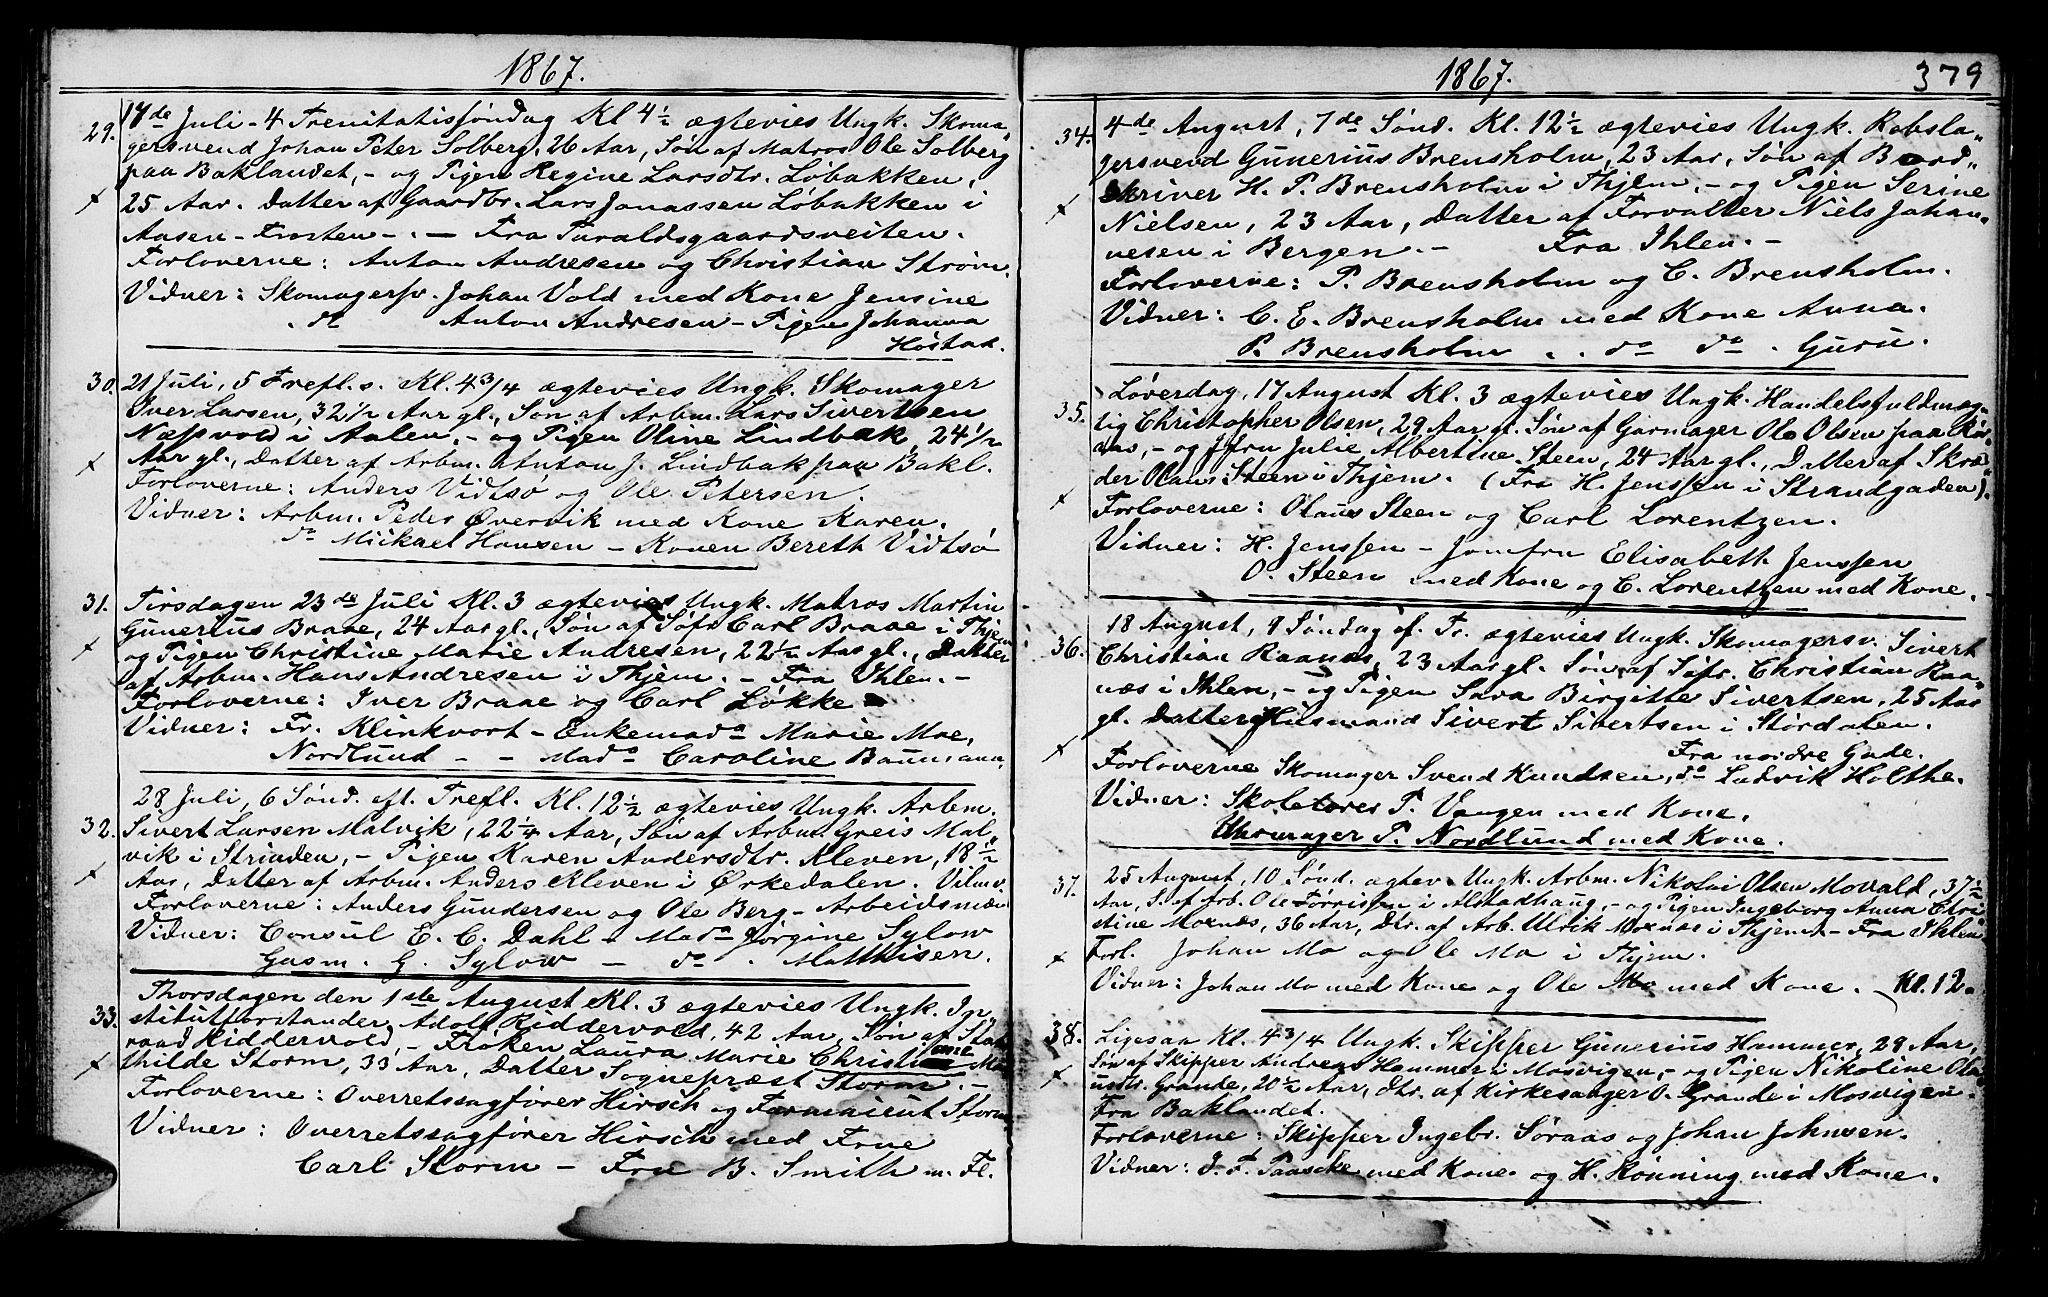 1867.
29. 17de Juli - 4 Trenitatisföndag Kl 4½ ægtevies Ungk. Skoma-
gersvend Johan Peter Solberg, 26 Aar, Søn af Matros Ole Solberg
paa Baklandet, - og Pigen Regine Larsdtr. Løbakken,
25 Aar. Datter af Gaardbr. Lars Jonassen Løbakken i
Aasen - Frosten - . — Fra Taraldsgaardsveiten.
Forloverne: Anton Andresen og Christian Strøm.
Vidner: Skomagersv. Johan Vold med Kone Jensine
do Anton Andresen - Pigen Johanna
Hostak.
30. 21 Juli, 5 Trefl. s. Kl. 4 3/4 ægtevies Ungk. Skomager
Iver Larsen, 32 1/2 Aar gl., Søn af Arbm. Lars Sivertsen
Næssvold i Aalen, - og Pigen Oline Lindbak, 24 1/2
Aar gl., Datter af Arbm. Anton J. Lindbak paa Bakl.
Forloverne: Anders Vidtsø og Ole Petersen.
Vidner: Arbm. Peder Øvervik med Kone Karen.
do Mickael Hansen - Konen Bereth Vidtsø
31. Tirsdagen 23de Juli Kl. 3 ægtevies Ungk. Matros Martin
Gunerius Braae, 24 Aar gl., Søn af Søfr. Carl Braae i Thjem
og Pigen Christine Marie Andresen, 22½ Aar gl., Datter
af Arbm. Hans Andresen i Thjem. - Fra Ihlen. -
Forloverne: Iver Braae og Carl Løkke
Vidner: Fr. Klinkvort - Enkemado Marie Moe,
Nordlund - - Mado Caroline Baumann.
32. 28 Juli, 6 Sønd. eft. Trefl. Kl. 12½ ægtevies Ungk. Arbm.
Sivert Larsen Malvik, 22¼ Aar, Søn af Arbm. Greis Mal-
vik i Strinden, - Pigen Karen Andersdtr. Kleven, 18½
Aar, Datter af Arbm. Anders Kleven i Ørkedalen.
Forloverne: Anders Gundersen og Ole Berg - Arbeidsmæn
Vidner: Consul E. C. Dahl - Mado Jørgine Sylow
Gasm. G. Sylow - do. Matthisen.
33. Thorsdagen den 1ste August Kl. 3 ægtevies Ungk. In-
stitutforstander Adolf Riddervold, 42 Aar, Søn af Stats
raad Riddervold, - Frøken Laura Marie Christiane Ma-
thilde Storm, 33 Aar, Datter Sognepræst Storm. -
Forloverne: Overretssagfører Hirsch og Storm
Vidner: Overretssagfører Hirsch med Frue
Carl Storm - Fru B. Smith m. Fl.
1867. 379
34. 4de August, 7de Sønd. Kl. 12½ ægtevies Ungk. Rebsla-
gersvend Gunerius Brensholm, 23 Aar, Søn af Bord-
skriver H. P. Brensholm i Thjem, - og Pigen Serine
Nielsen, 23 Aar, Datter af Forvalter Niels Johan-
nesen i Bergen. - Fra Ihlen. -
Forloverne: P. Brensholm og C. Brensholm.
Vidner: C. E. Brensholm med Kone Anna.
P. Brensholm . . do do . Guru.
35. Løverdag, 17 August Kl. 3 ægtevies Ungk. Handelsfuldmæg-
tig Christopher Olsen, 29 Aar gl. Søn af Garmager Ole Olsen paa Rør-
aas, - og Jfru Julie Albertine Steen, 24 Aar gl., Datter af Skræ-
der Olaus Steen i Thjem. (Fra H. Jenssen i Strandgaden).
Forloverne: Olaus Steen og Carl Lorentzen.
Vidner: H. Jenssen - Jomfru Elisabeth Jenssen
O. Steen med Kone og C. Lorentzen med Kone.
36. 18 August, 9 Søndag ef. Tr. ægtevies Ungk. Skomagersv. Sivert
Christian Raanæs, 23 Aar gl. Søn af Søfr. Christian Raa-
næs i Ihlen, - og Pigen Sara Birgitte Sivertsen, 25 Aar
gl. Datter af Husmand Sivert Sivertsen i Størdalen.
Fra nordre Gade.
Forloverne Skomager Svend Knudsen, do Ludvik Holthe.
Vidner: Skolelærer P. Vangen med Kone.
Uhrmager P. Nordlund med Kone.
37. 25 August, 10 Sønd. ægtev. Ungk. Arbm. Nikolai Olsen Movald, 37½
Aar, S. af Arb. Ole Torrissen i Alstadhaug, - og Pigen Ingeborg Anna Chri-
stine Moenæs, 36 Aar, Dtr. af Arb. Ulrik Moenæs i Thjem. - Fra Ihlen
Forl. Johan Mo og Ole Mo i Thjem.
Vidner: Johan Mo med Kone og Ole Mo med Kone. - Kl. 12.
38. Ligesaa Kl. 4 3/4 Ungk. Skipper Gunerius Hammer, 29 Aar,
Søn af Skipper Andreas Hammer i Mosvigen, - og Pigen Nikoline Ola-
usdtr. Grande, 20½ Aar, Dtr. af Kirkesanger O. Grande i Mosvigen.
Fra Baklandet.
Forloverne: Skipper Ingebr. Søraas og Johan Johnsen.
Vidner: J. F. Paascke med Kone og H. Rönning med Kone.